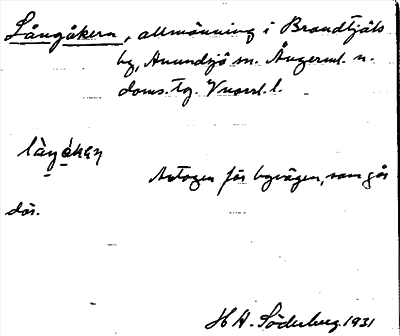 Långåkern, allmänning i Brandtjäls
by, Anundsjö sn. Ångerml. n.
doms. tg. Vnorrl. l.
Avtagen för byvägen, som går
där.
H A. Söderberg 1931